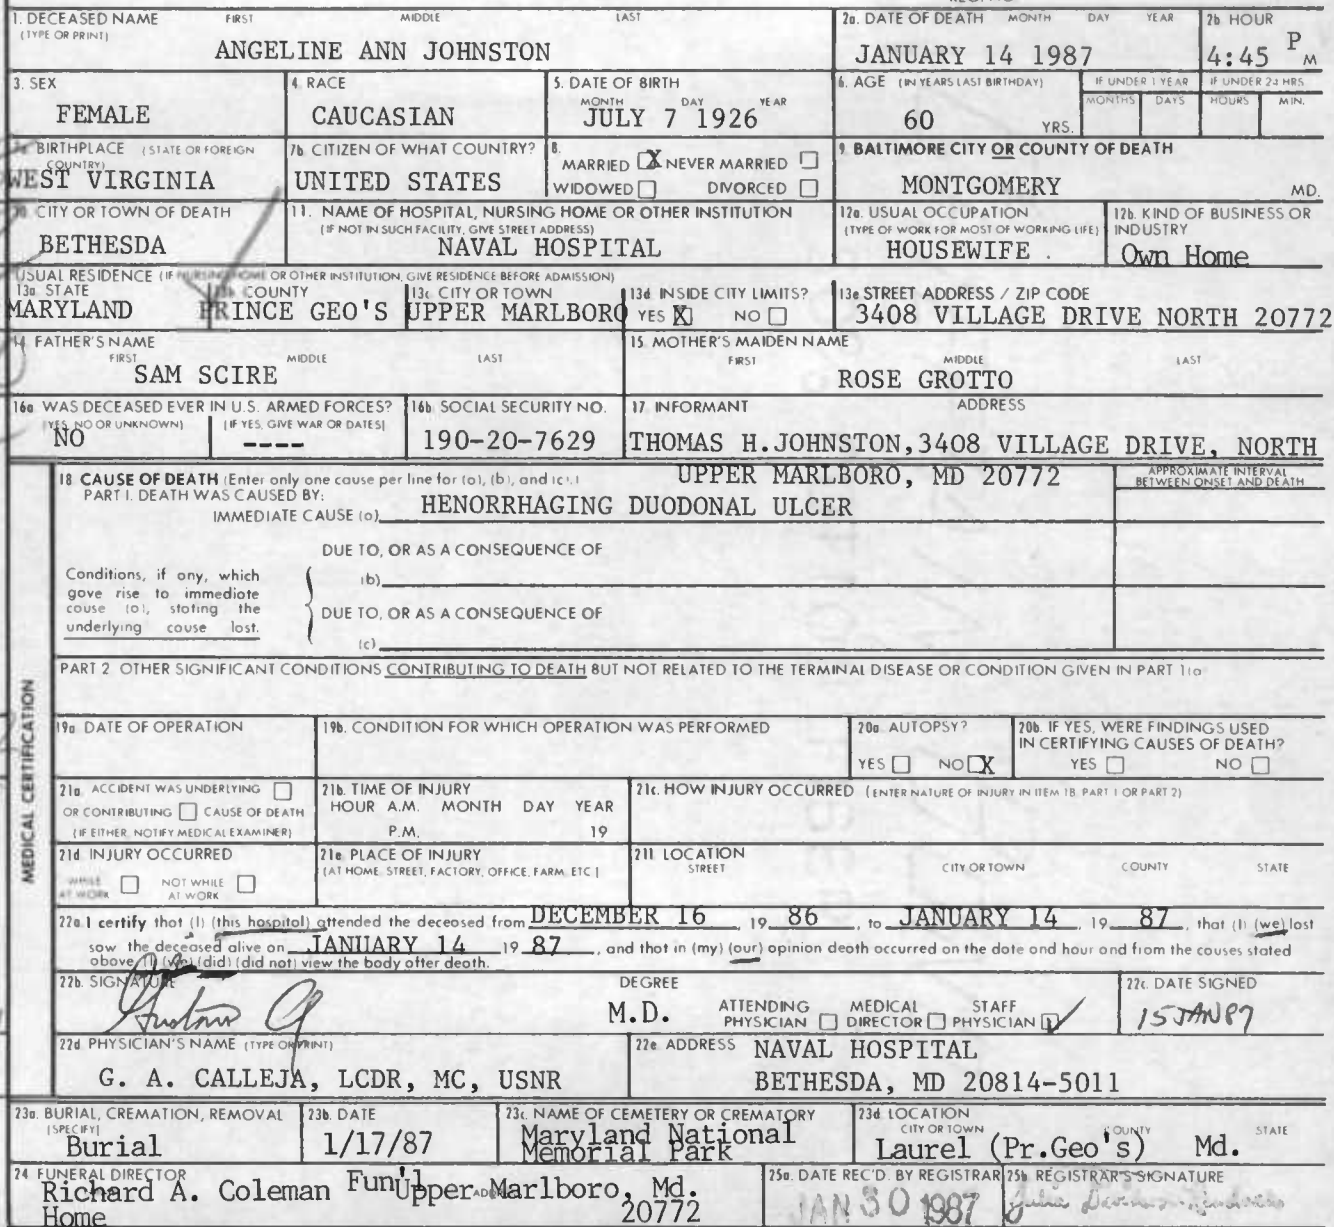 1. DECEASED NAME FIRST MIDDLE LAST
(TYPE OR PRINT)
ANGELINE ANN JOHNSTON
2a. DATE OF DEATH MONTH DAY YEAR
JANUARY 14 1987
2b HOUR
4:45 P M
3. SEX
FEMALE
4. RACE
CAUCASIAN
5. DATE OF BIRTH
MONTH DAY YEAR
JULY 7 1926
6. AGE (IN YEARS LAST BIRTHDAY)
60 YRS.
IF UNDER 1 YEAR
MONTHS DAYS
IF UNDER 24 HRS.
HOURS MIN.
BIRTHPLACE (STATE OR FOREIGN
COUNTRY)
WEST VIRGINIA
7b. CITIZEN OF WHAT COUNTRY?
UNITED STATES
8.
MARRIED X NEVER MARRIED
WIDOWED DIVORCED
9. BALTIMORE CITY OR COUNTY OF DEATH
MONTGOMERY MD.
10. CITY OR TOWN OF DEATH
BETHESDA
11. NAME OF HOSPITAL, NURSING HOME OR OTHER INSTITUTION
(IF NOT IN SUCH FACILITY, GIVE STREET ADDRESS)
NAVAL HOSPITAL
12a. USUAL OCCUPATION
(TYPE OF WORK FOR MOST OF WORKING LIFE)
HOUSEWIFE .
12b. KIND OF BUSINESS OR
INDUSTRY
Own Home
USUAL RESIDENCE (IF NURSING HOME OR OTHER INSTITUTION, GIVE RESIDENCE BEFORE ADMISSION)
13a STATE
MARYLAND
COUNTY
PRINCE GEO'S
13c CITY OR TOWN
UPPER MARLBORO
13d INSIDE CITY LIMITS?
YES X NO
13e STREET ADDRESS / ZIP CODE
3408 VILLAGE DRIVE NORTH 20772
14. FATHER'S NAME
FIRST MIDDLE LAST
SAM SCIRE
15. MOTHER'S MAIDEN NAME
FIRST MIDDLE LAST
ROSE GROTTO
16a WAS DECEASED EVER IN U.S. ARMED FORCES?
(YES, NO OR UNKNOWN) (IF YES, GIVE WAR OR DATES)
NO ----
16b SOCIAL SECURITY NO.
190-20-7629
17. INFORMANT ADDRESS
THOMAS H.JOHNSTON,3408 VILLAGE DRIVE, NORTH
UPPER MARLBORO, MD 20772
MEDICAL CERTIFICATION
18 CAUSE OF DEATH (Enter only one cause per line for (a), (b), and (c).)
APPROXIMATE INTERVAL
BETWEEN ONSET AND DEATH
PART I. DEATH WAS CAUSED BY:
IMMEDIATE CAUSE (a) HENORRHAGING DUODONAL ULCER
DUE TO, OR AS A CONSEQUENCE OF
(b)
Conditions, if any, which
gave rise to immediate
cause (a), stating the
underlying cause last.
DUE TO, OR AS A CONSEQUENCE OF
(c)
PART 2 OTHER SIGNIFICANT CONDITIONS CONTRIBUTING TO DEATH BUT NOT RELATED TO THE TERMINAL DISEASE OR CONDITION GIVEN IN PART 1(a
19a DATE OF OPERATION
19b. CONDITION FOR WHICH OPERATION WAS PERFORMED
20a AUTOPSY?
YES NO X
20b. IF YES, WERE FINDINGS USED
IN CERTIFYING CAUSES OF DEATH?
YES NO
21a. ACCIDENT WAS UNDERLYING
OR CONTRIBUTING CAUSE OF DEATH
(IF EITHER, NOTIFY MEDICAL EXAMINER)
21b. TIME OF INJURY
HOUR A.M. MONTH DAY YEAR
P.M. 19
21c. HOW INJURY OCCURRED (ENTER NATURE OF INJURY IN ITEM 18, PART 1 OR PART 2)
21d INJURY OCCURRED
WHILE AT WORK NOT WHILE AT WORK
21e. PLACE OF INJURY
(AT HOME, STREET, FACTORY, OFFICE, FARM, ETC.)
21f LOCATION
STREET CITY OR TOWN COUNTY STATE
22a I certify that (I) (this hospital) attended the deceased from DECEMBER 16 19 86 , to JANUARY 14 , 19 87 , that (I) (we) last
saw the deceased alive on JANUARY 14 19 87 , and that in (my) (our) opinion death occurred on the date and hour and from the causes stated
above, (I) (we) (did) (did not) view the body after death.
22b. SIGNATURE
DEGREE
M.D.
ATTENDING PHYSICIAN MEDICAL DIRECTOR STAFF PHYSICIAN
22c. DATE SIGNED
15 JAN 87
22d PHYSICIAN'S NAME (TYPE OR PRINT)
G. A. CALLEJA, LCDR, MC, USNR
22e ADDRESS
NAVAL HOSPITAL
BETHESDA, MD 20814-5011
23a. BURIAL, CREMATION, REMOVAL
(SPECIFY)
Burial
23b. DATE
1/17/87
23c. NAME OF CEMETERY OR CREMATORY
Maryland National
Memorial Park
23d LOCATION
CITY OR TOWN COUNTY STATE
Laurel (Pr.Geo's) Md.
24 FUNERAL DIRECTOR
Richard A. Coleman Fun'l Upper Marlboro, Md.
Home 20772
25a. DATE REC'D. BY REGISTRAR
JAN 30 1987
25b. REGISTRAR'S SIGNATURE